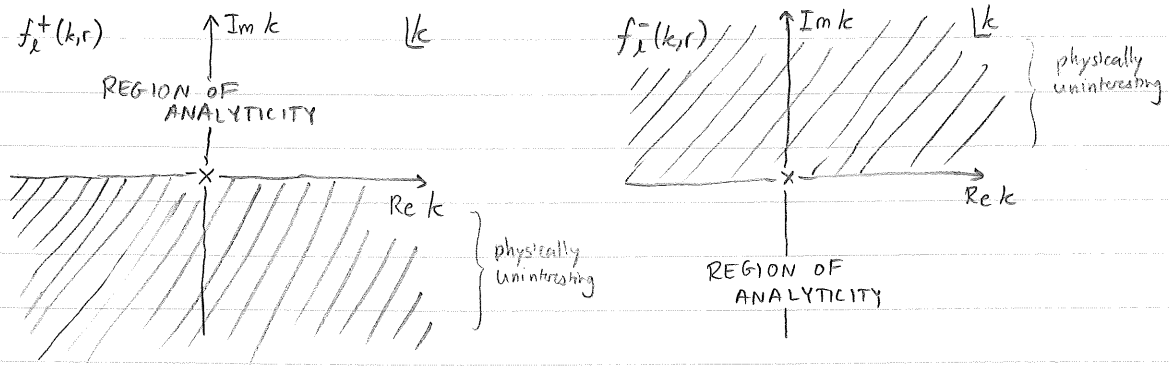 f_ℓ^+(k,r)
Im k
k
REGION OF
ANALYTICITY
Re k
physically
uninteresting
f_ℓ^-(k,r)
Im k
k
physically
uninteresting
Re k
REGION OF
ANALYTICITY